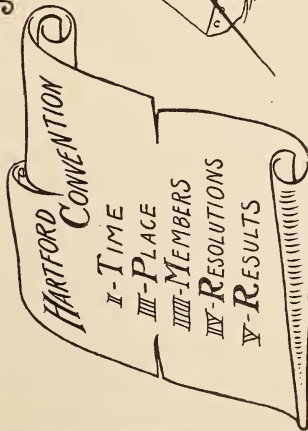 HARTFORD
CONVENTION
I-TIME
II-PLACE
III-MEMBERS
IV-RESOLUTIONS
V-RESULTS
C